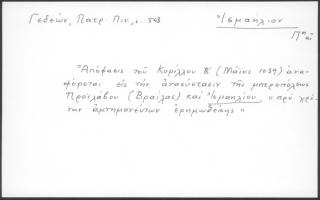 Γεδεών, Πατρ. Πιν., σ. 568
Ἰσμαήλιον
Ἀπόφασις τοῦ Κυρίλλου Β΄ (Μάϊος 1639) ἀνα-
φέρεται εἰς τὴν ἀνασύστασιν τῆς μητροπόλεως
Προϊλάβου (Βραΐλας) καὶ Ἰσμαηλίου, «πρὸ χρό-
νων ἀμνημονεύτων ἐρημωθείσης»